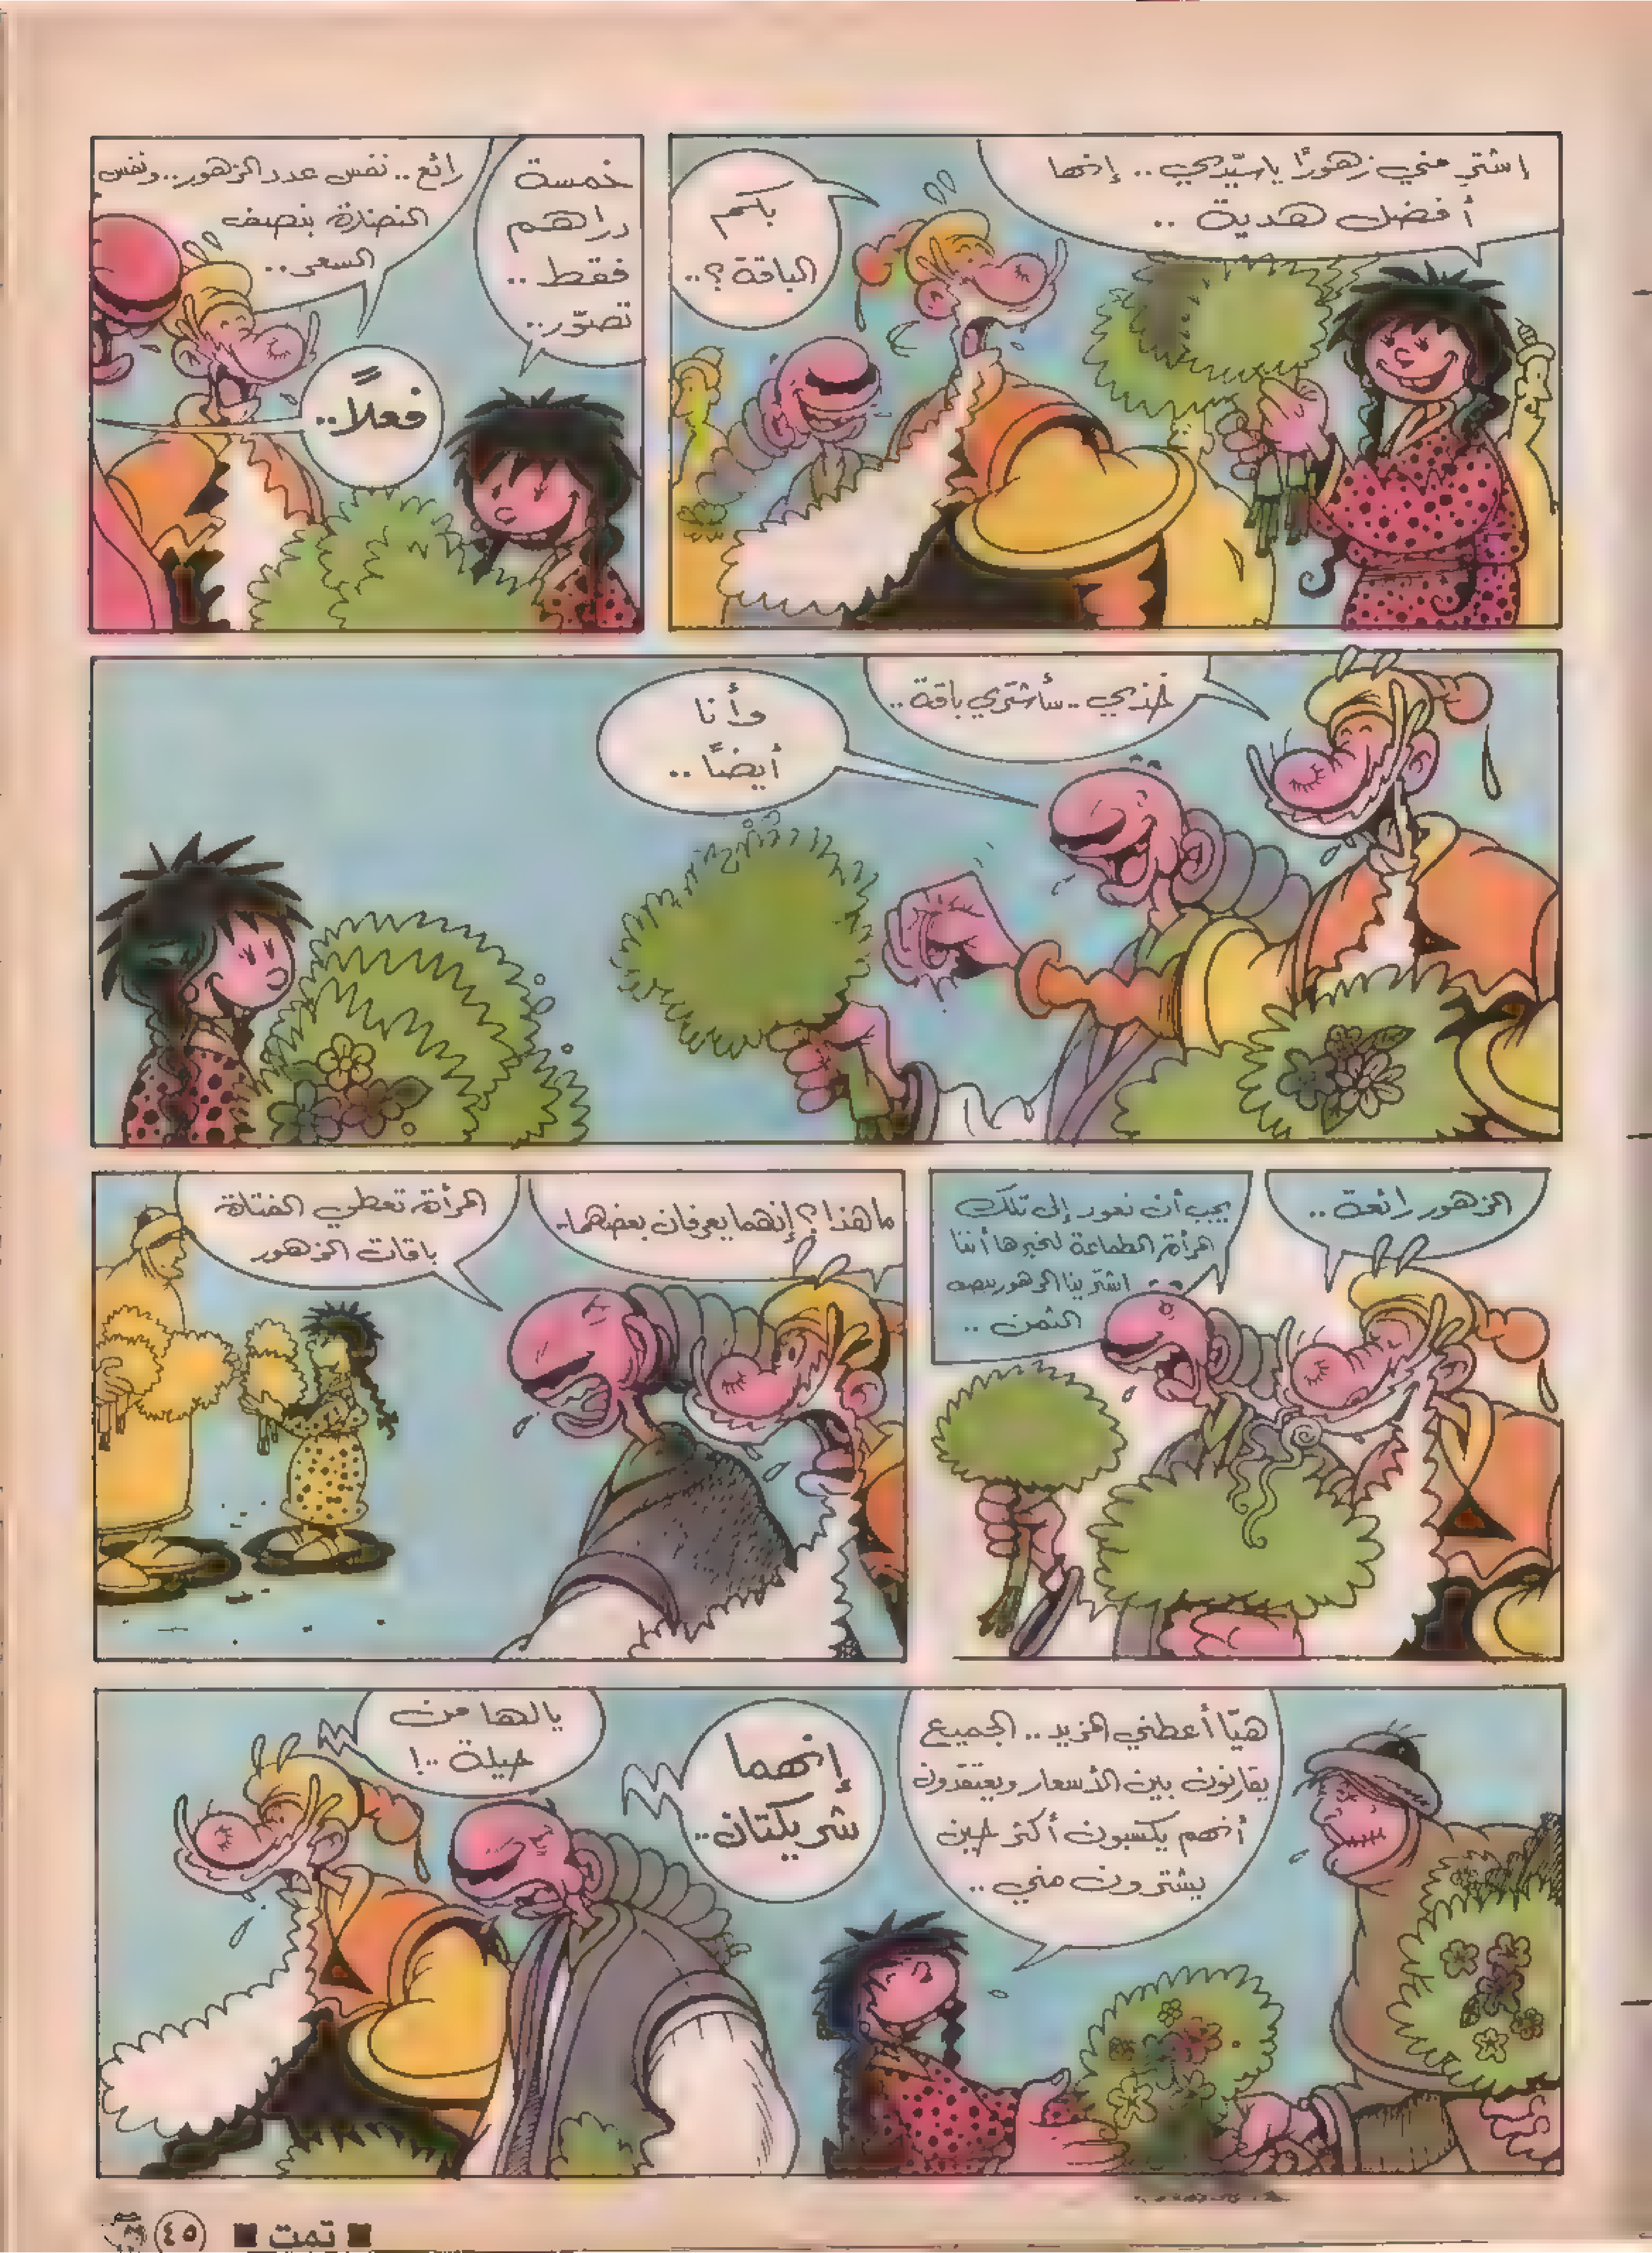 إشترِ مني زهورًا يا سيّدي .. إنها
أفضل هدية ..
بكم
الباقة؟..
خمسة
دراهم
فقط ..
تصوّر..
رائع.. نفس عدد الزهور.. ونفس
النضارة بنصف
السعر..
فعلاً..
خذي.. سأشتري باقة..
وأنا
أيضًا ..
الزهور رائعة..
يجب أن نعود إلى تلك
المرأة الطماعة لنخبرها أننا
اشترينا الزهور بنصف
الثمن ..
ما هذا؟ إنهما يعرفان بعضهما..
المرأة تعطي الفتاة
باقات الزهور
هيّا أعطني المزيد.. الجميع
يقارنون بين الأسعار ويعتقدون
أنهم يكسبون أكثر حين
يشترون مني ..
إنهما
شريكتان..
يا لها من
حيلة ..!
■ تمت ■ ٤٥